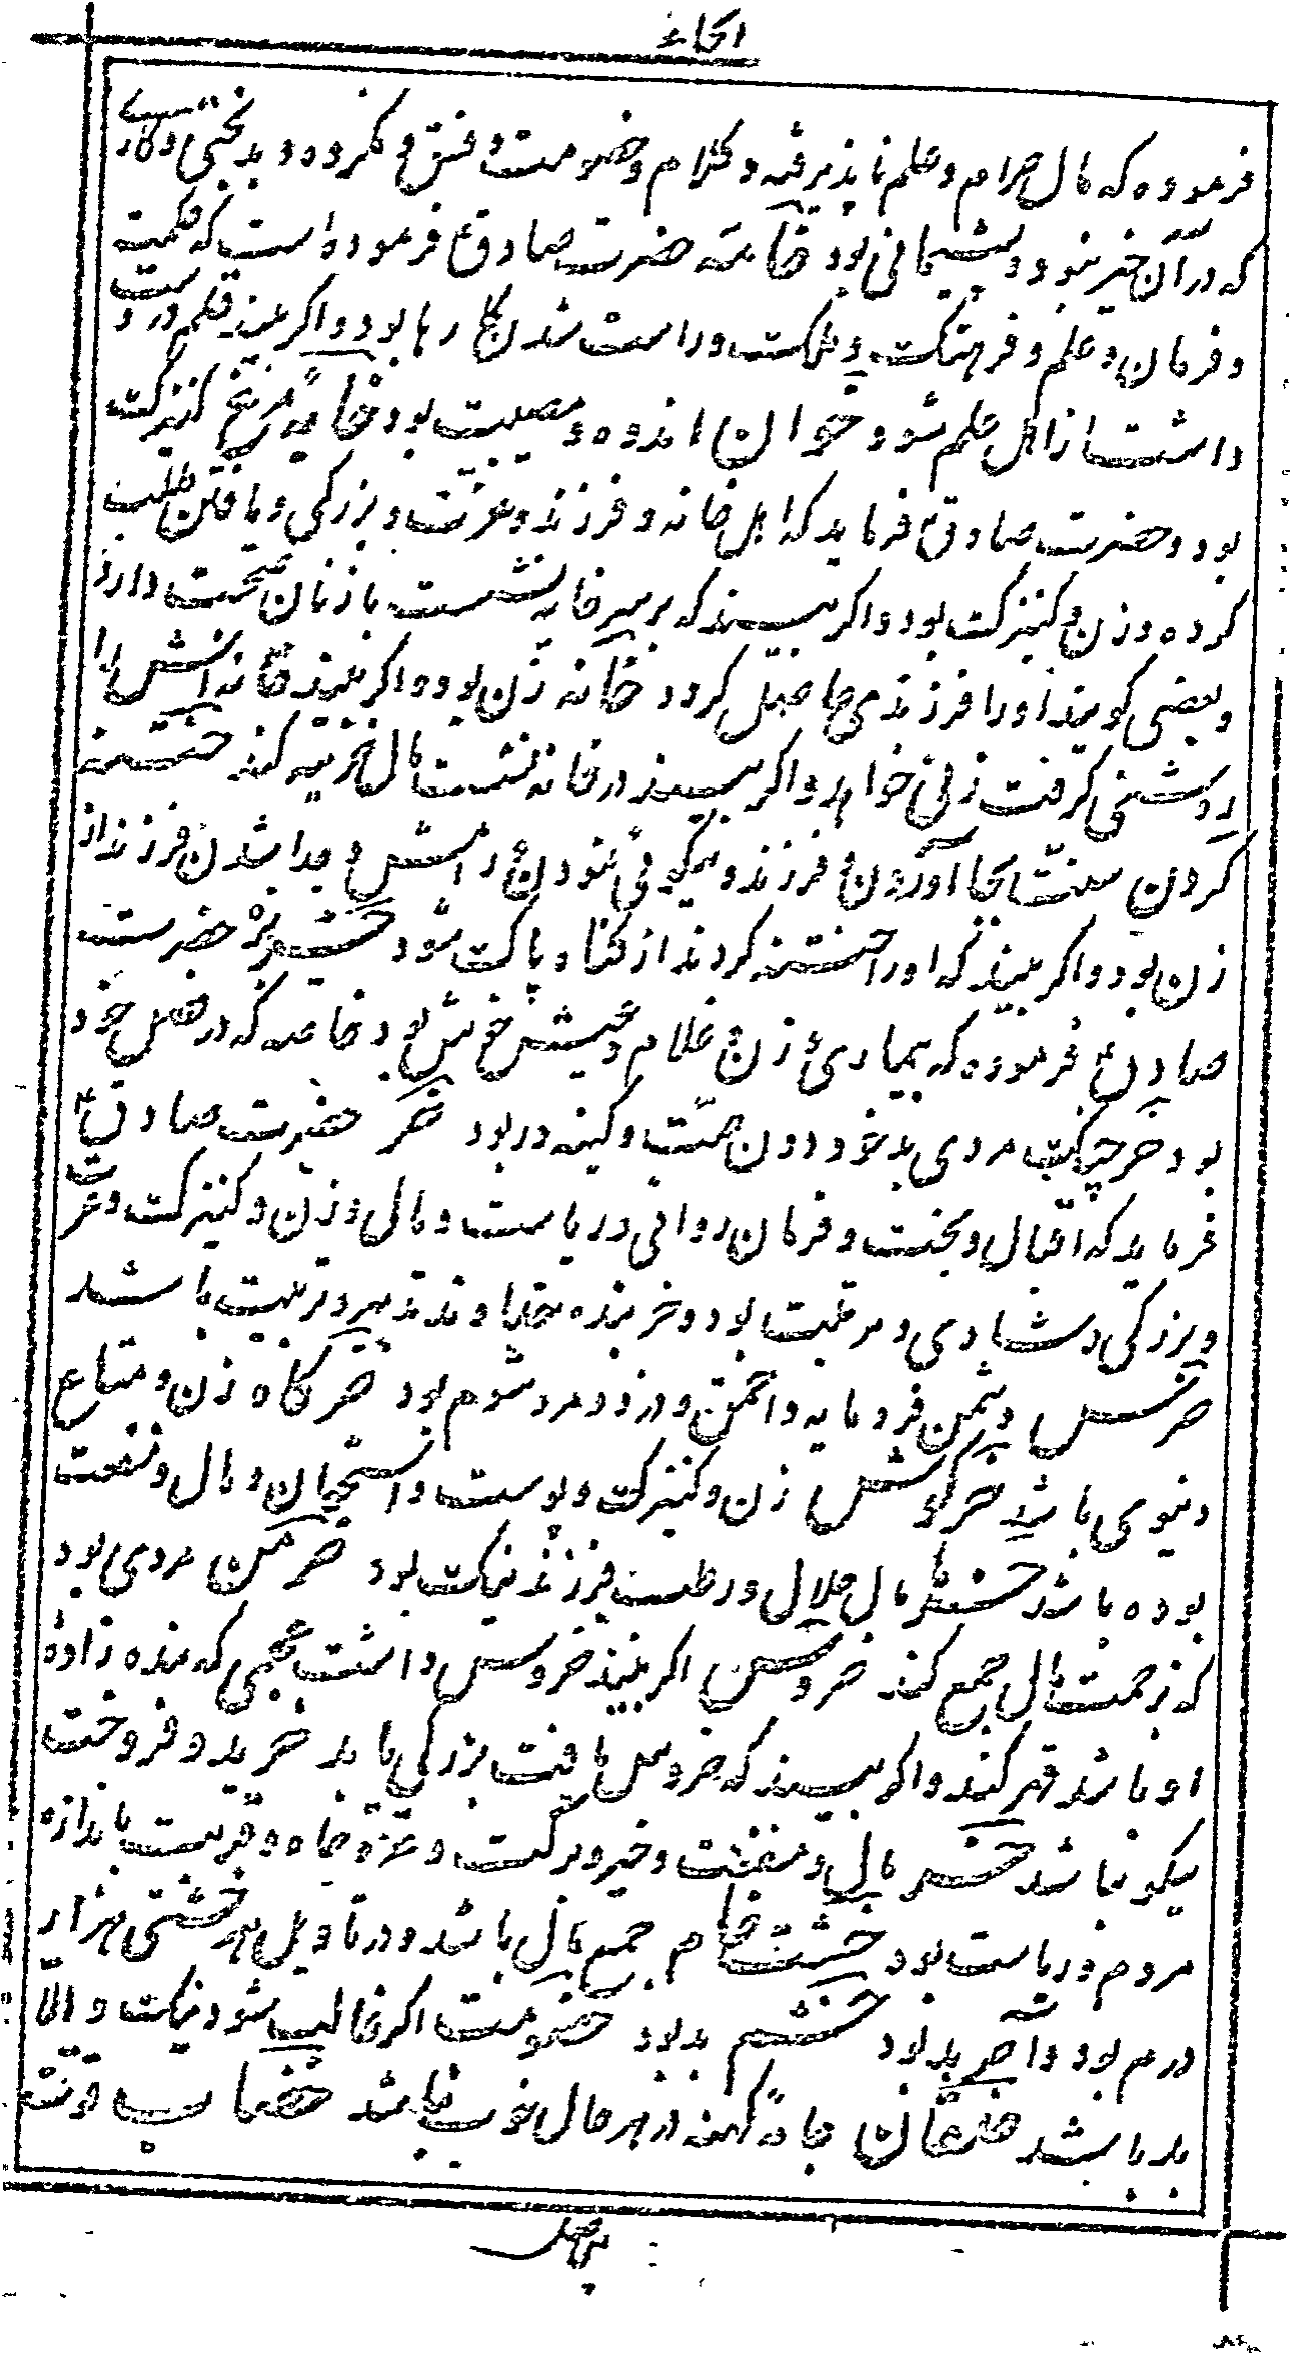 الخاء
فرموده که مال حرام و علم ناپذیرفته و کلام و خصومت و فسق و مکروه و بدبختی و کاری
که در آن خیر نبود و پشیمانی بود خامه حضرت صادق فرموده است که حکمت
و فرمان و علم و فرهنگ و مملکت و راست شدن کارها بود و اگر بیند قلم در دست
داشت از اهل علم شود خوان اندوه و مصیبت بود خایه مرغ کنیزک
بود و حضرت صادق فرماید که اهل خانه و فرزند و عزت و بزرگی و یافتن طلب
کرده و زن و کنیزک بود و اگر بیند که بر سر خایه نشست با زنان صحبت دارد
و بعضی گویند او را فرزندی حاصل گردد خانه زن بود و اگر بیند خانه اش را
روشنی گرفت زنی خواهد و اگر بیند در خانه نشست مال خزینه کند ختنه
کردن سنت بجا آوردن و فرزند و نیکوئی نمودن و رامش و جدا شدن فرزند از
زن بود و اگر بیند که او را ختنه کردند از گناه پاک شود خربزه حضرت
صادق فرموده که بیماری و زن و غلام و عیش خوش بود خاصه که در فصل خود
بود خرچنگ مردی بدخو و دون همت و کینه ور بود خر حضرت صادق
فرماید که اقبال و بخت و فرمان روائی و ریاست و مال و زن و کنیزک و عزت
و بزرگی و شادی و مرتبت بود و خربنده خداوند تدبیر و تربیت باشد
خرس دشمن فرومایه و احمق و دزد و مرد شوم بود خرگاه زن و متاع
دنیوی باشد خرگوش زن و کنیزک و پوست و استخوان و مال و منفعت
بوده باشد مال حلال و رطب فرزند نیک بود خرمن مردی بود
که زحمت مال جمع کند خروس اگر بیند خروس داشت عجمی که بنده زاده
او باشد قهر کند و اگر بیند که خروس یافت بزرگی یابد خرید و فروخت
نیکو نباشد مال و منفعت و خیر و برکت و عز و جاه و قربت باندازه
مردم و ریاست بود خشت خام جمع مال باشد و در تاویل هر خشتی هزار
درم بود و آجر بد بود خشم بد بود خصومت اگر غالب شود نیک و الا
بد باشد خلقان جامه کهنه در هر حال خوب نباشد خضاب قوت